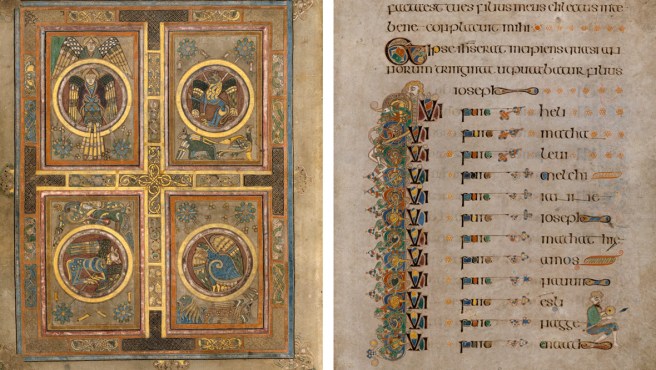 factaest tu es filius meus dilectus inte
bene conplacuit mihi
Et ipse ihs erat incipiens quasi an
norum triginta ut putabatur filius
ioseph
QUI fuit heli
QUI fuit mathat
QUI fuit leui
QUI fuit melchi
QUI fuit
QUI fuit ioseph
QUI fuit mathathie
QUI fuit amos
QUI fuit nauum
QUI fuit esli
QUI fuit nagge
QUI fuit